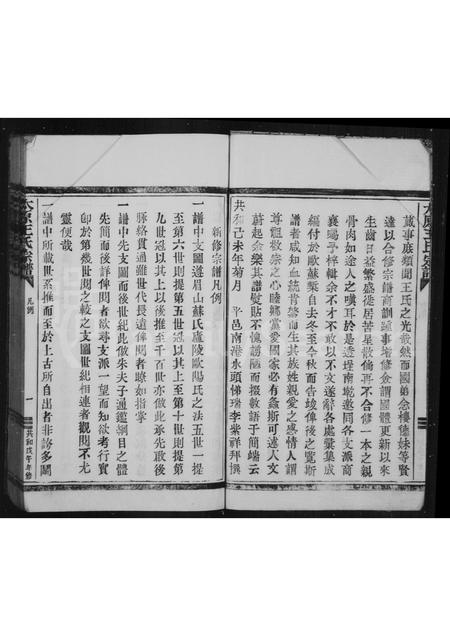 太原王氏宗譜
蕆事庭類聞王氏之光哉然而國弟念樓德妹等賢
達以合修宗譜商訓鍾事增修僉謂國體更新以來
生齒日益繁盛徙居苦星散倘再不合修一本之親
骨肉如途人之嘆耳於是透埕南乾遂同各支派商
襄賜予梓輯余不才不敢以不文遂辭各處彙集成
編付於歐蘇槧自去冬至今秋而告竣俾後之寬斯
譜者咸知血統肯肇而生其族姓親愛之感情人謂
尊祖敬宗之心睦鄉黨愛國家必有螽斯可述人文
蔚起余樂其譜熨貼不愧謭陋而掇數語于簡端云
共和己未年菊月 平邑南港水頭悌瑞李紫祥拜撰
太原王氏宗譜
凡例
一
共和戊午年修
新修宗譜凡例
一譜中支圖遵眉山蘇氏廬陵歐陽氏之法五世一提
至第六世則提第五世冠以其上至第十世則提第
九世冠以其上以後推至千百世亦倣此承先啟後
脈絡貫通雖世代長遠俾閱者瞭如指掌
一譜中先支圖而後世紀此倣朱夫子通鑑綱目之體
先簡而後詳俾閱者欲尋支派一望而知欲考行實
即於第幾世閱之較之支圖世紀相連者觀閱不尤
靈便哉
一譜中所載世系推而至於上古所自出者非誇多鬭